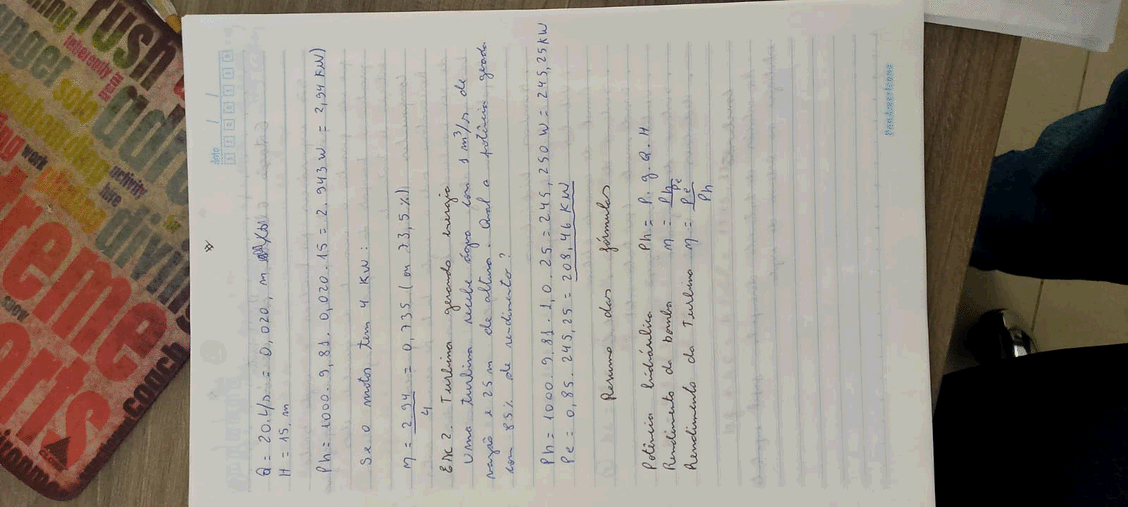 Data
Q = 20.L/s = 0,020, m
H = 15, m
Ph = 1000. 9,81. 0,020. 15 = 2.943.W = 2,94 KW)
Se o motor tem 4 KW:
η = 2,94 = 0,735 (ou 73,5%)
4
EX 2. Turbina gerando energia
Uma turbina recebe água com 1 m³/s de
vazão e 25 m de altura. Qual a potência gerada
com 85% de rendimento?
Ph = 1000. 9,81. 1,0. 25 = 245,250 W = 245,25 KW
Pe = 0,85. 245,25 = 208,46 KW
Resumo das fórmulas
Potência hidráulica Ph = P. g. Q. H
Rendimento da bomba η = Ph
Pe
Rendimento da Turbina η = Pe
Ph
Pandacartoons
rush
unger
solo
inherently
work
activity
hire
for
diving
treme
snow
orts
coach